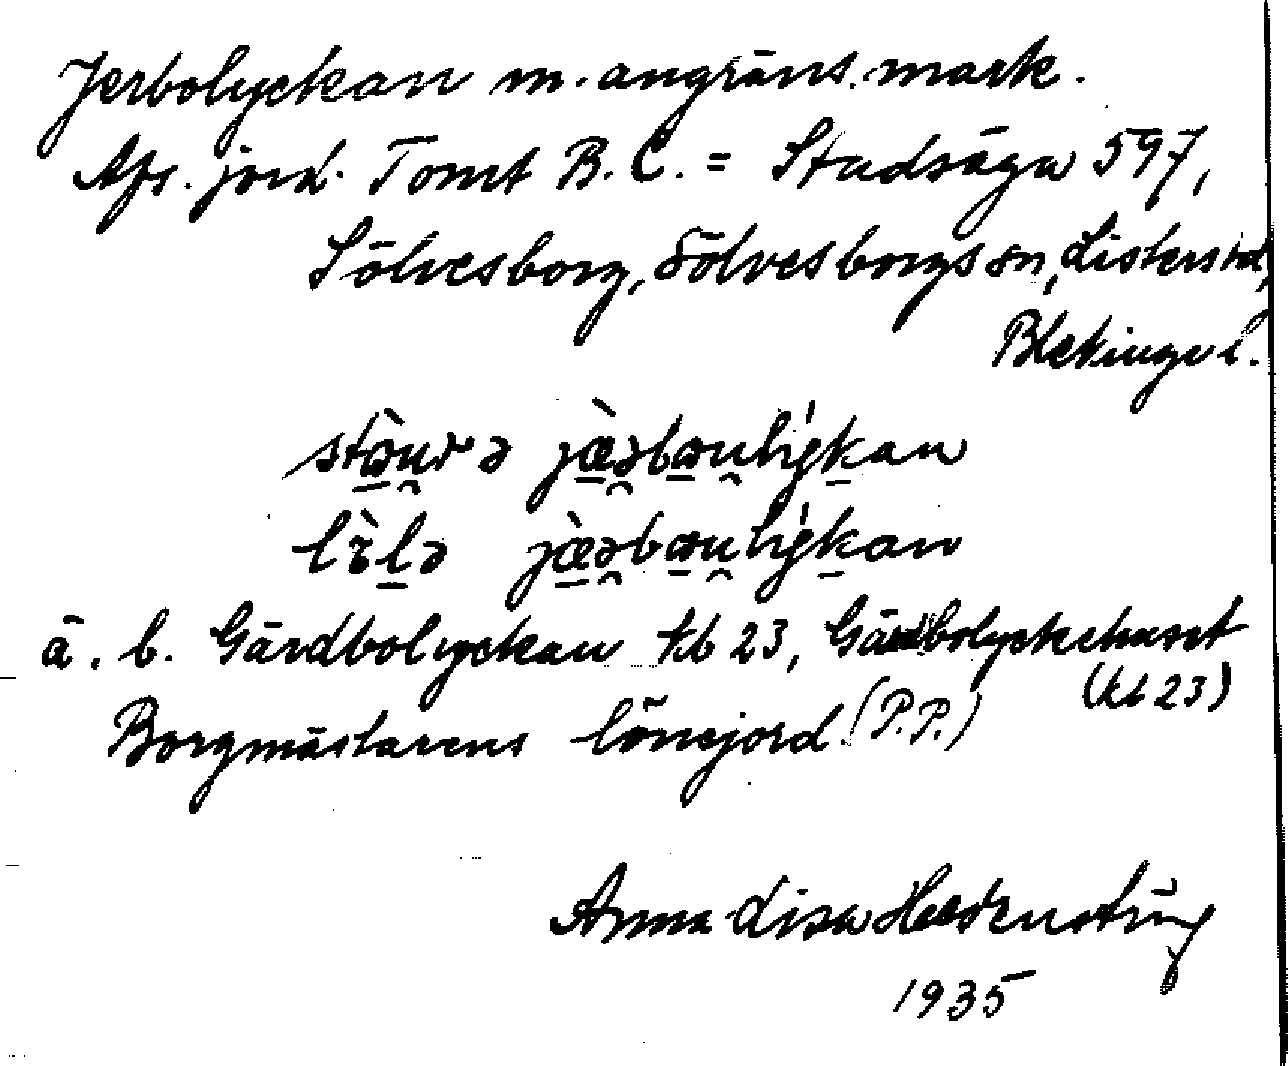 Jerbolyckan m. angräns. mark.
Afs. jord. Tomt B. C. = Stadsäga 597,
Sölvesborg, Sölvesborgs sn, Listers hd,
Blekinge l.
stə̀u̯rə jæ̀ə̯bəu̯lýkan
lìlə jæ̀ə̯bəu̯lýkan
ä. b. Gärdbolyckan kb 23, Gärdbolyckehuset
(kb 23)
Borgmästarens lönejord (P.P.)
Anna Lisa Hedenstring
1935